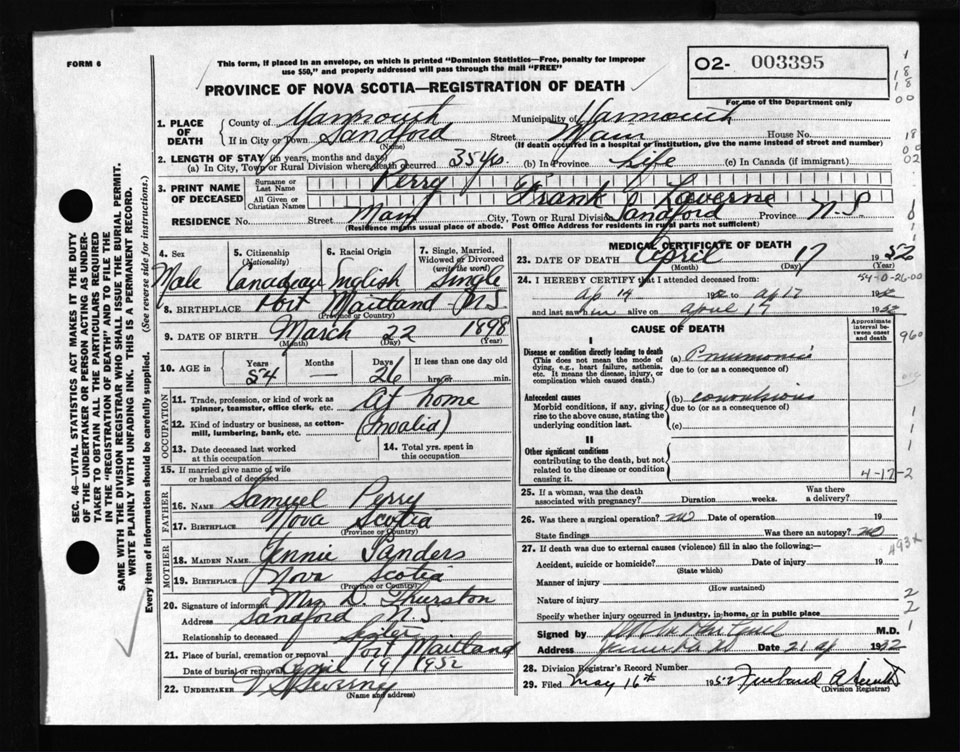 FORM 6
This form, if placed in an envelope, on which is printed "Dominion Statistics—Free, penalty for improper
use $50," and properly addressed will pass through the mail "FREE"
O2- 003395
PROVINCE OF NOVA SCOTIA—REGISTRATION OF DEATH
For use of the Department only
1. PLACE OF DEATH County of Yarmouth Municipality of Yarmouth
If in City or Town Sandford (Name) Street Main House No.
(If death occurred in a hospital or institution, give the name instead of street and number)
2. LENGTH OF STAY (in years, months and days)
(a) In City, Town or Rural Division where death occurred 35 yrs. (b) In Province Life (c) In Canada (if immigrant)
3. PRINT NAME OF DECEASED Surname or Last Name Perry
All Given or Christian Names Frank Laverne
RESIDENCE No. Street Main City, Town or Rural Division Sandford Province N.S
(Residence means usual place of abode. Post Office Address for residents in rural parts not sufficient)
4. Sex Male
5. Citizenship (Nationality) Canadian
6. Racial Origin English
7. Single, Married, Widowed or Divorced (write the word) Single
8. BIRTHPLACE Port Maitland N.S
(Province or Country)
9. DATE OF BIRTH March 22 1898
(Month) (Day) (Year)
10. AGE in Years 54 Months — Days 26 If less than one day old hrs. or min.
OCCUPATION
11. Trade, profession, or kind of work as spinner, teamster, office clerk, etc. At home
12. Kind of industry or business, as cotton-mill, lumbering, bank, etc. (Invalid)
13. Date deceased last worked at this occupation
14. Total yrs. spent in this occupation
15. If married give name of wife or husband of deceased
FATHER
16. NAME Samuel Perry
17. BIRTHPLACE Nova Scotia
(Province or Country)
MOTHER
18. MAIDEN NAME Jennie Sanders
19. BIRTHPLACE Nova Scotia
(Province or Country)
20. Signature of informant Mrs D. Thurston
Address Sandford N.S.
Relationship to deceased Sister
21. Place of burial, cremation or removal Port Maitland
Date of burial or removal April 19 1952
22. UNDERTAKER
(Name and address)
SEC. 46—VITAL STATISTICS ACT MAKES IT THE DUTY
OF THE UNDERTAKER OR PERSON ACTING AS UNDERTAKER TO OBTAIN ALL THE PARTICULARS REQUIRED
IN THE "REGISTRATION OF DEATH" AND TO FILE THE
SAME WITH THE DIVISION REGISTRAR WHO SHALL ISSUE THE BURIAL PERMIT.
WRITE PLAINLY WITH UNFADING INK. THIS IS A PERMANENT RECORD.
Every item of information should be carefully supplied. (See reverse side for instructions.)
MEDICAL CERTIFICATE OF DEATH
23. DATE OF DEATH April 17 1952
(Month) (Day) (Year)
54-0-26-00
24. I HEREBY CERTIFY that I attended deceased from:
Ap 14 1952 to Ap 17 1952
and last saw him alive on April 17 1952
CAUSE OF DEATH
Approximate interval between onset and death
960
I
Disease or condition directly leading to death (a) Pneumonia
(This does not mean the mode of dying, e.g., heart failure, asthenia, etc. It means the disease, injury, or complication which caused death.)
due to (or as a consequence of)
Antecedent causes (b) convulsions
Morbid conditions, if any, giving rise to the above cause, stating the underlying condition last.
due to (or as a consequence of)
(c)
II
Other significant conditions
contributing to the death, but not related to the disease or condition causing it.
4-17-2
25. If a woman, was the death associated with pregnancy? Duration weeks. Was there a delivery?
26. Was there a surgical operation? no Date of operation 19
State findings Was there an autopsy? no
493x
27. If death was due to external causes (violence) fill in also the following:—
Accident, suicide or homicide? Date of injury 19
(State which)
Manner of injury
(How sustained)
Nature of injury
Specify whether injury occurred in industry, in home, or in public place
Signed by M.D.
Address Date 21 Ap 1952
28. Division Registrar's Record Number
29. Filed May 16th 1952
(Division Registrar)